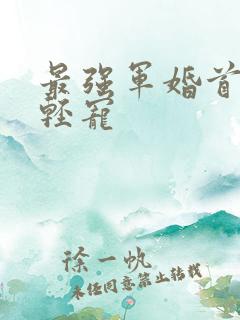 最强军婚首
轻宠
徐一帆
未经同意禁止转载